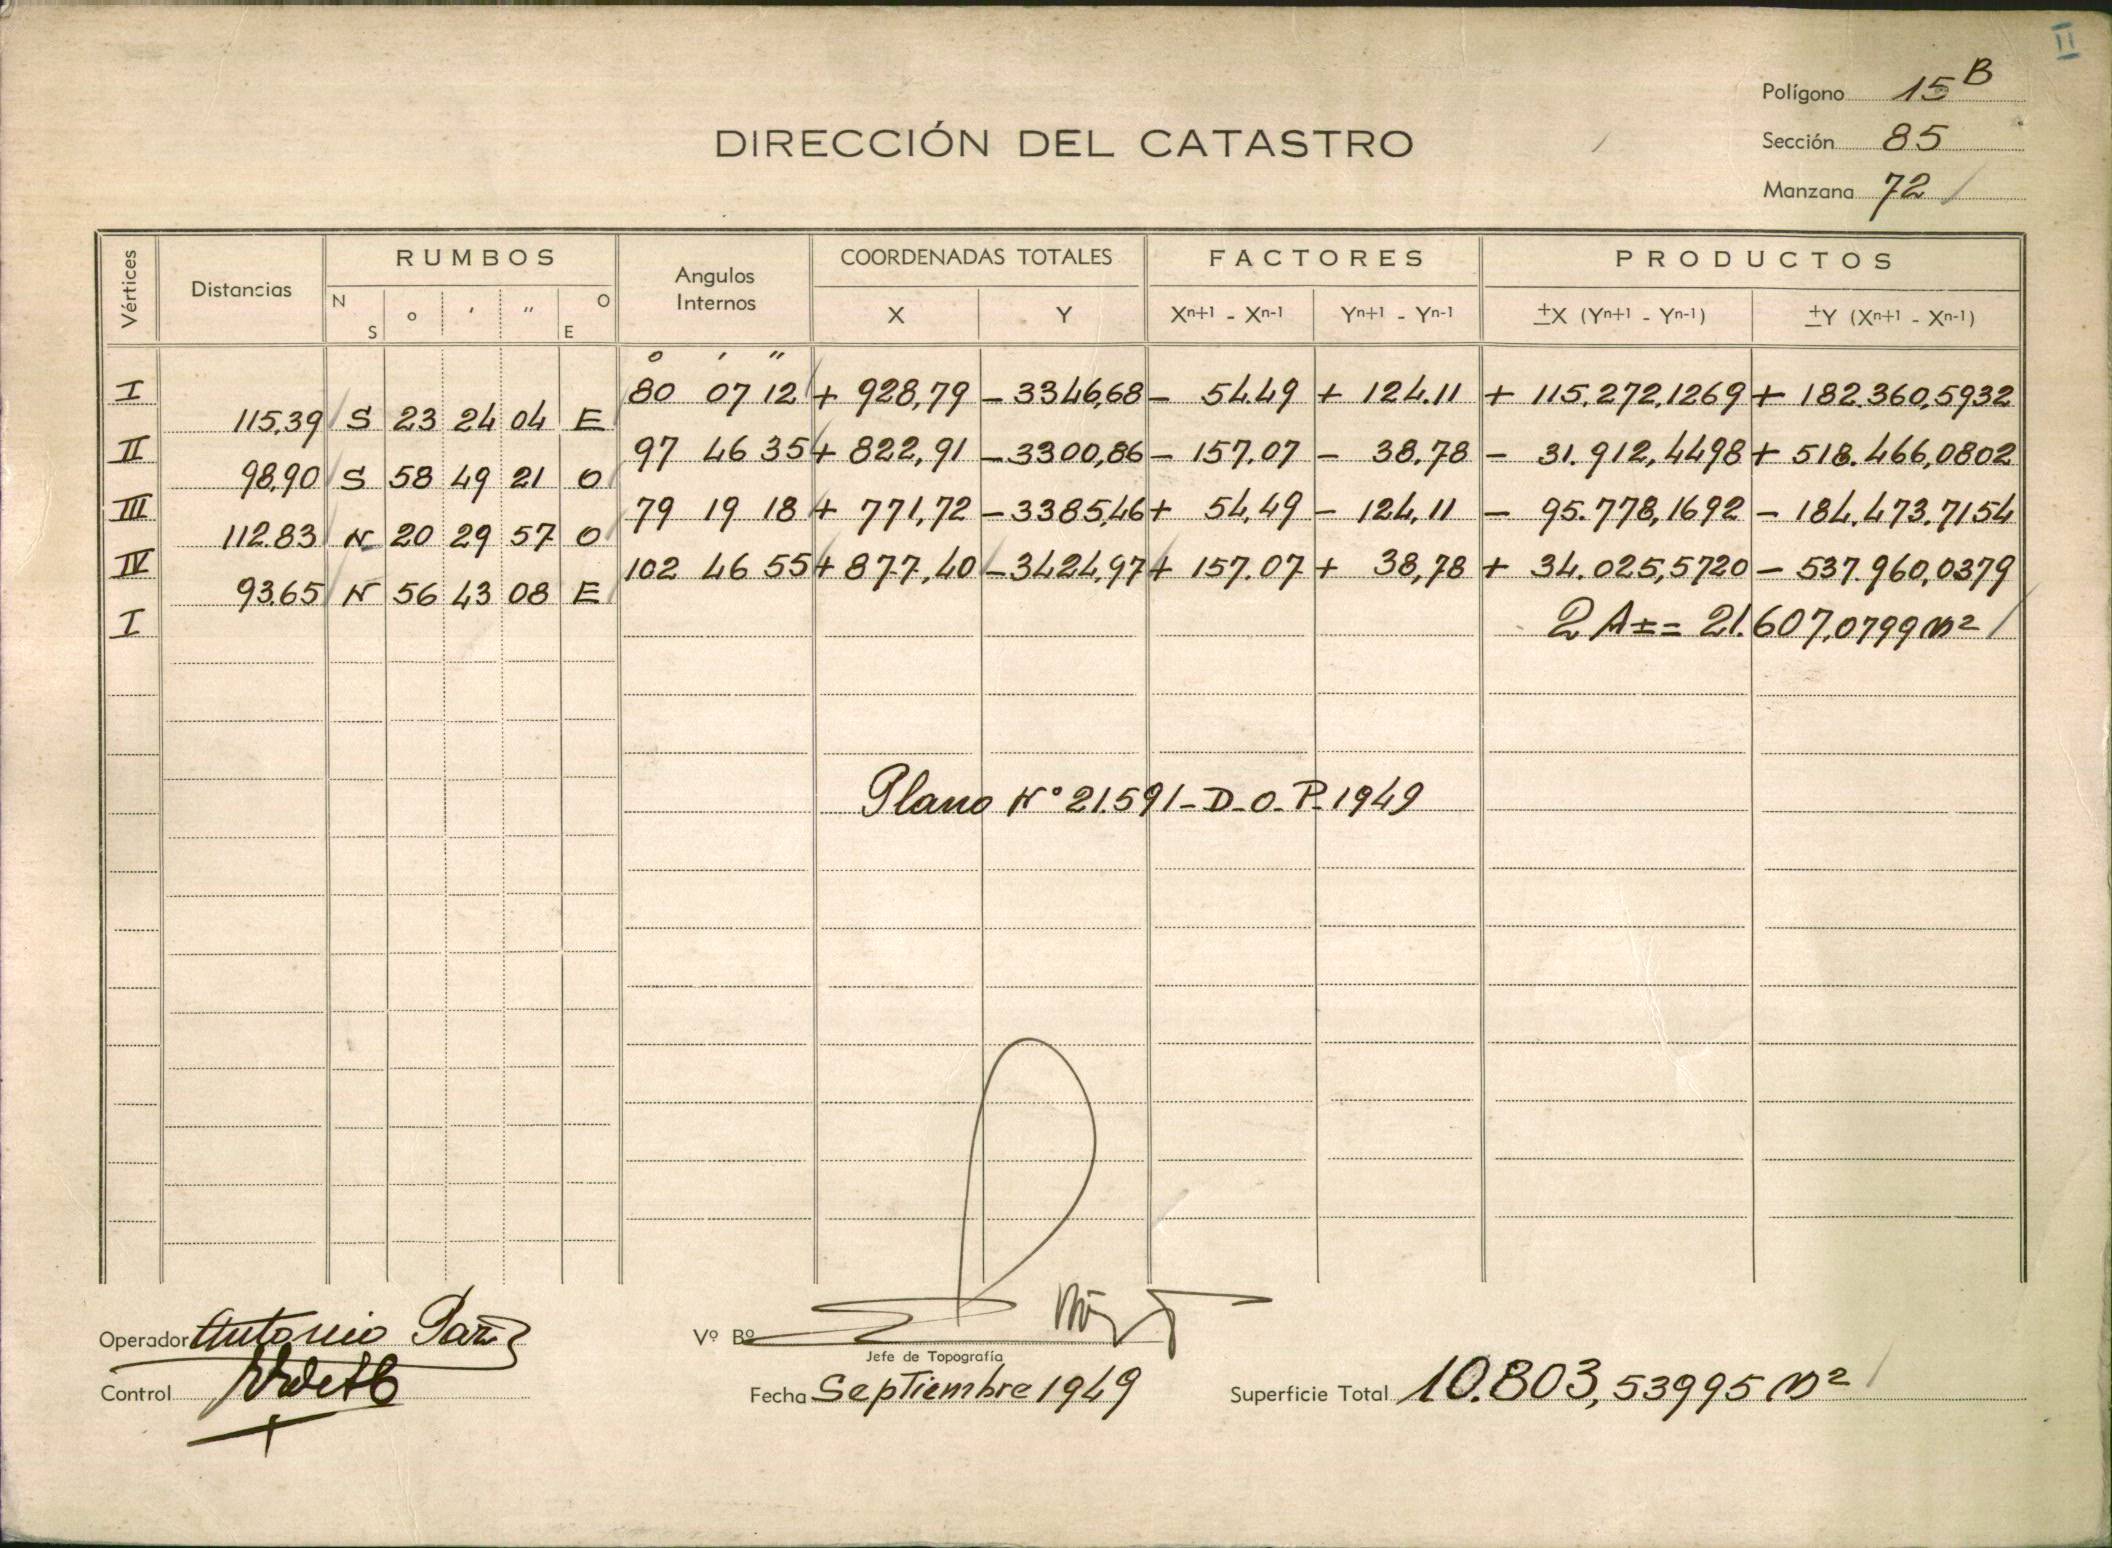 II
Polígono 15 B
DIRECCIÓN DEL CATASTRO
Sección 85
Manzana 72
Vértices Distancias RUMBOS Angulos Internos COORDENADAS TOTALES FACTORES PRODUCTOS
N S o ' " O E X Y Xn+1 - Xn-1 Yn+1 - Yn-1 ±X (Yn+1 - Yn-1) ±Y (Xn+1 - Xn-1)
o ' "
I 80 07 12 + 928,79 - 3346,68 - 54.49 + 124.11 + 115.272,1269 + 182.360,5932
115,39 S 23 24 04 E
II 97 46 35 + 822,91 - 3300,86 - 157.07 - 38.78 - 31.912,4498 + 518.466,0802
98,90 S 58 49 21 O
III 79 19 18 + 771,72 - 3385,46 + 54,49 - 124,11 - 95.778,1692 - 184.473.7154
112.83 N 20 29 57 O
IV 102 46 55 + 877,40 - 3424,97 + 157.07 + 38,78 + 34.025,5720 - 537.960,0379
93.65 N 56 43 08 E
I 2 A ± = 21.607,0799 m²
Plano Nº 21.591 - D - O - P - 1949
Operador Antonio
Vº Bº
Jefe de Topografía
Control
Fecha Septiembre 1949
Superficie Total 10.803,53995 m²